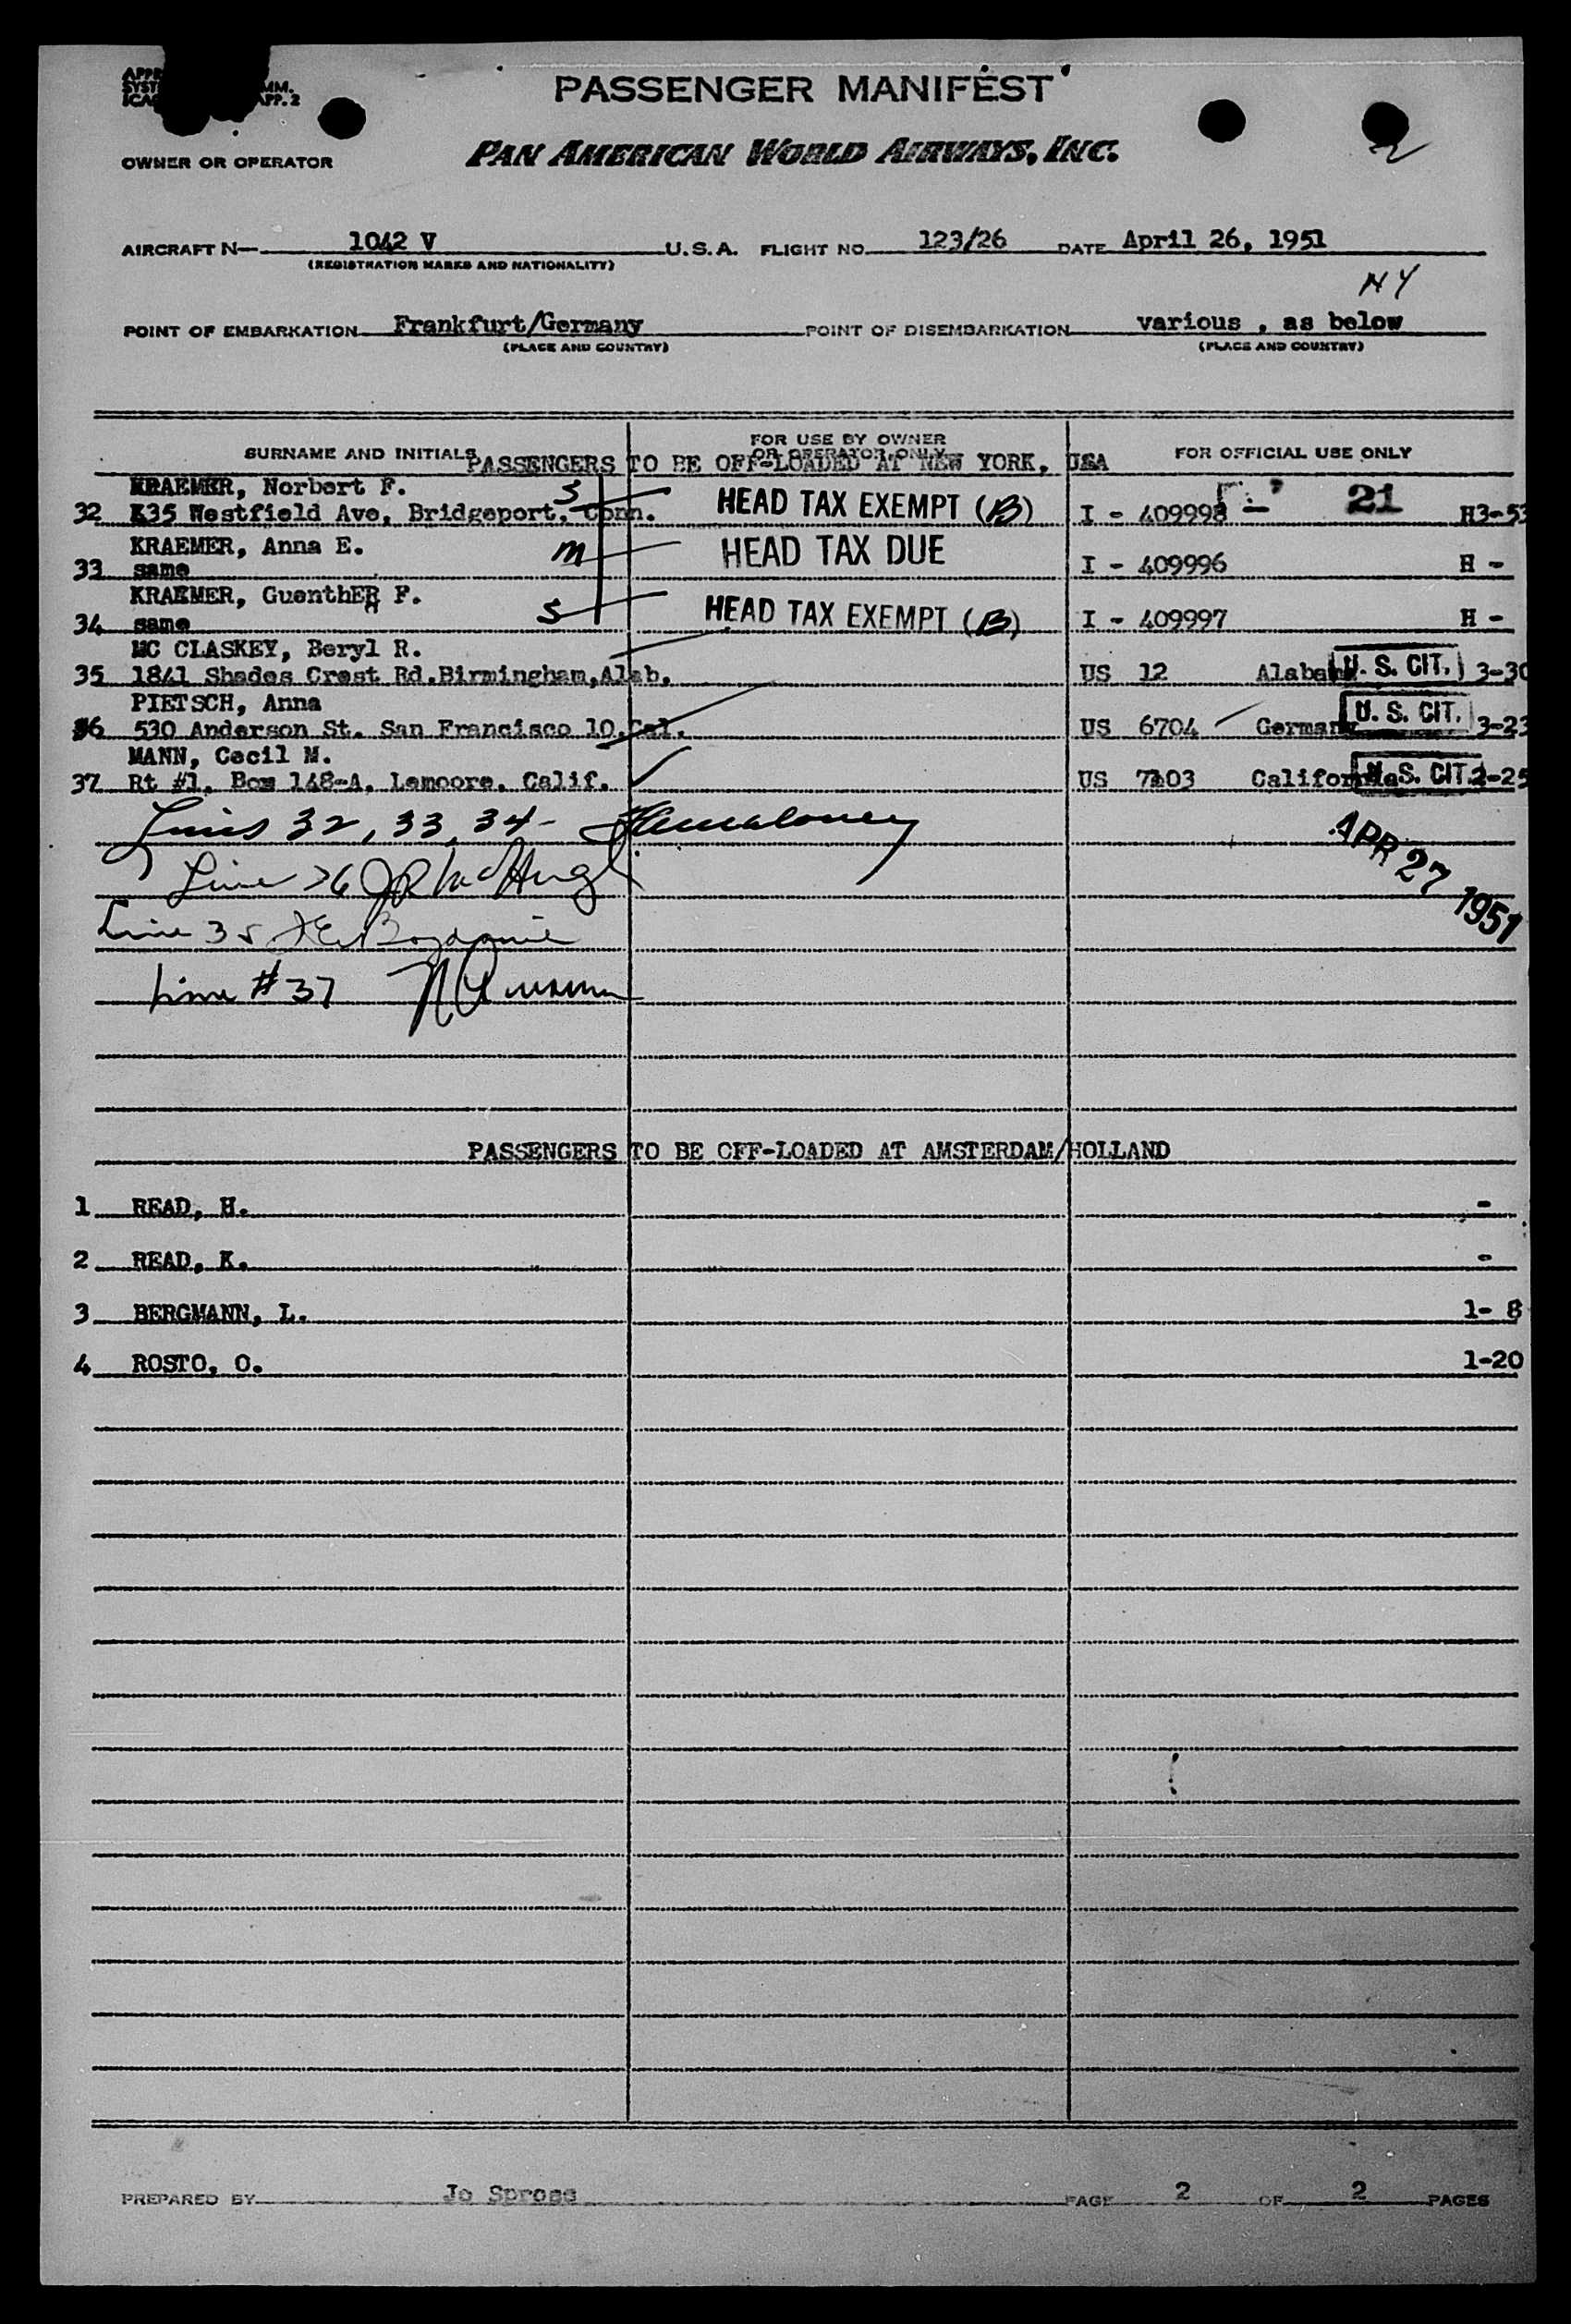 PASSENGER MANIFEST
OWNER OR OPERATOR PAN AMERICAN WORLD AIRWAYS, INC.
AIRCRAFT N— 1042 V U.S.A. FLIGHT NO. 123/26 DATE April 26, 1951
(REGISTRATION MARKS AND NATIONALITY)
NY
POINT OF EMBARKATION Frankfurt/Germany POINT OF DISEMBARKATION various , as below
(PLACE AND COUNTRY) (PLACE AND COUNTRY)
SURNAME AND INITIALS FOR USE BY OWNER OR OPERATOR ONLY FOR OFFICIAL USE ONLY
PASSENGERS TO BE OFF-LOADED AT NEW YORK, USA
KRAEMER, Norbert F. S HEAD TAX EXEMPT (B) 21
32 835 Westfield Ave, Bridgeport, Conn. I - 409998 H3-53
KRAEMER, Anna E. M HEAD TAX DUE
33 same I - 409996 H -
KRAEMER, GuenthER F. S HEAD TAX EXEMPT (B)
34 same I - 409997 H -
MC CLASKEY, Beryl R.
35 1841 Shades Crest Rd.Birmingham,Alab. US 12 Alabama U. S. CIT. 3-30
PIETSCH, Anna
36 530 Anderson St. San Francisco 10.Cal. US 6704 Germany U. S. CIT. 3-23
MANN, Cecil M.
37 Rt #1, Box 148-A, Lemoore, Calif. US 7103 California U. S. CIT. 2-25
Lines 32, 33, 34-
APR 27 1951
Line 36
Line 35
Line #37
PASSENGERS TO BE OFF-LOADED AT AMSTERDAM/HOLLAND
1 READ, H. -
2 READ, K. -
3 BERGMANN, L. 1- 8
4 ROSTO, O. 1-20
PREPARED BY Jo Spross PAGE 2 OF 2 PAGES